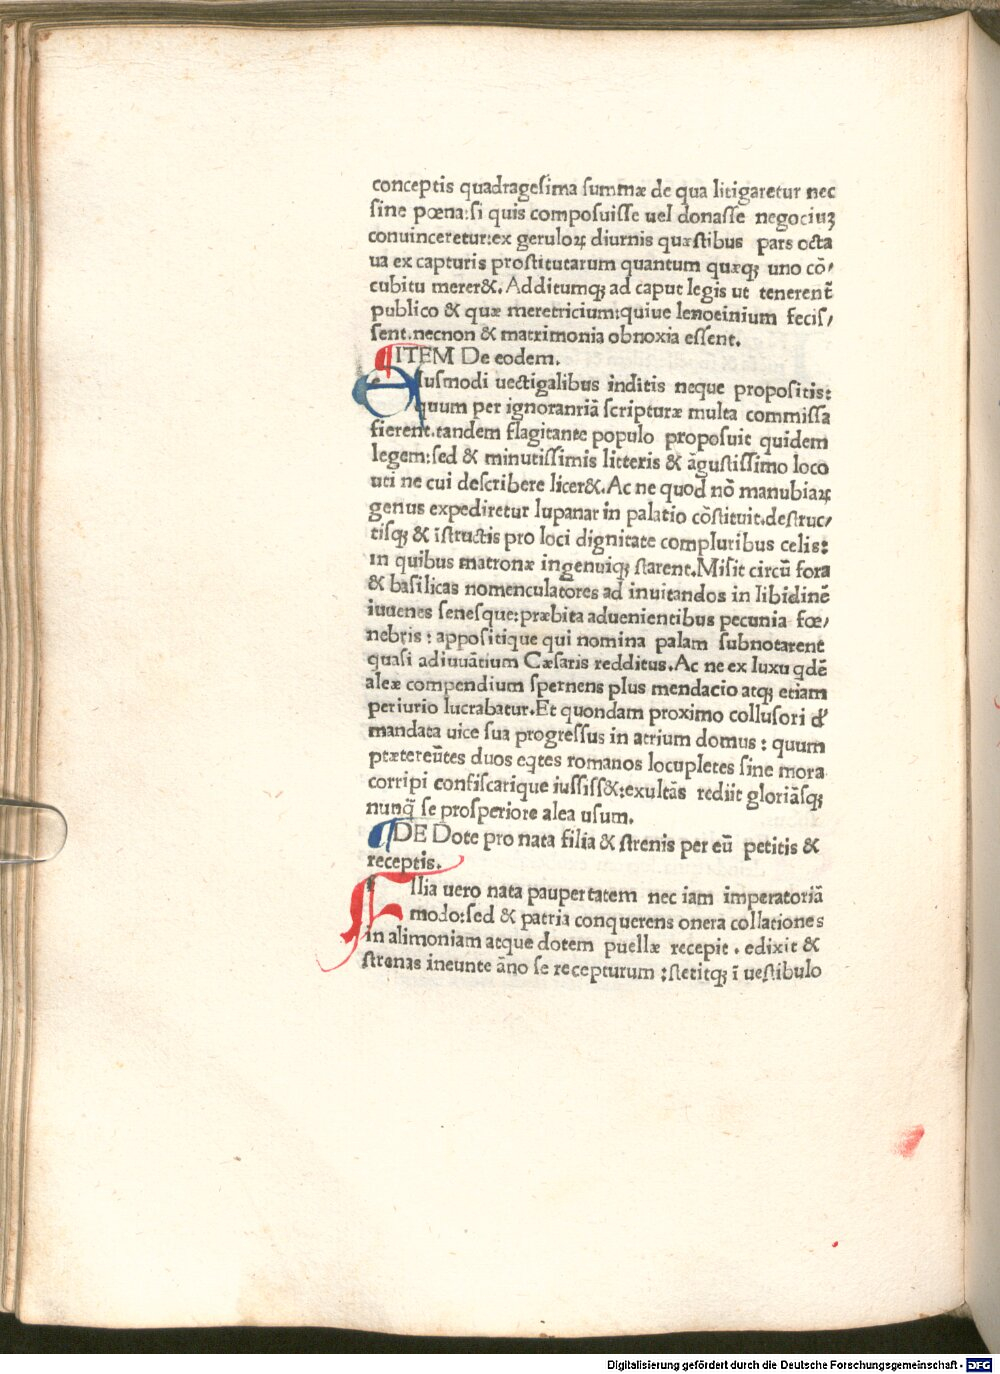 conceptis quadragesima summæ de qua litigaretur nec
sine pœna:si quis composuisse uel donasse negociuꝫ
conuinceretur:ex geruloꝝ diurnis quæstibus pars octa
ua ex capturis prostitutarum quantum quæqꝫ uno cō/
cubitu merer&. Additumqꝫ ad caput legis ut tenerent̄
publico & quæ meretricium:quiue lenocinium fecis/
sent.necnon & matrimonia obnoxia essent.
¶ITEM De eodem.
Eiusmodi uectigalibus inditis neque propositis:
quum per ignoranriā scripturæ multa commissa
fierent.tandem flagitante populo proposuit quidem
legem:sed & minutissimis litteris & āgustissimo loco
uti ne cui describere licer&.Ac ne quod nō manubiaꝝ
genus expediretur lupanar in palatio cōstituit.destruc/
tisqꝫ & īstructis pro loci dignitate compluribus celis:
in quibus matronæ ingenuiqꝫ starent.Misit circū fora
& basilicas nomenculatores ad inuitandos in libidinē
iuuenes senesque:præbita aduenientibus pecunia fœ/
nebris : appositique qui nomina palam subnotarent
quasi adiuuātium Cæsaris redditus.Ac ne ex luxu qdē
aleæ compendium spernens plus mendacio atqꝫ etiam
periurio lucrabatur.Et quondam proximo collusori d'
mandata uice sua progressus in atrium domus : quum
ptætereūtes duos eqtes romanos locupletes sine mora
corripi confiscarique iussiss&:exultās rediit gloriāsqꝫ
nunq̄ se prosperiore alea usum.
¶DE Dote pro nata filia & strenis per eū petitis &
receptis.
Filia uero nata paupertatem nec iam imperatoriā
modo:sed & patria conquerens onera collationes
in alimoniam atque dotem puellæ recepit . edixit &
strenas ineunte āno se recepturum :stetitqꝫ ī uestibulo
Digitalisierung gefördert durch die Deutsche Forschungsgemeinschaft - DFG